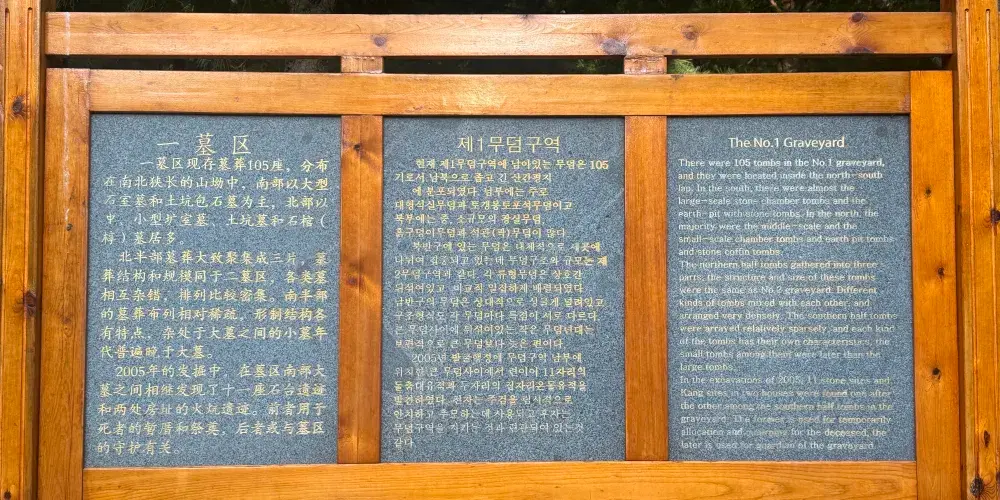 一 墓 区
一墓区现存墓葬105座，分布
在南北狭长的山坳中，南部以大型
石室墓和土坑包石墓为主，北部以
中、小型圹室墓、土坑墓和石棺（
椁）墓居多。
北半部墓葬大致聚集成三片，墓
葬结构和规模同于二墓区，各类墓
相互杂错，排列比较密集。南半部
的墓葬布列相对稀疏，形制结构各
有特点，杂处于大墓之间的小墓年
代普遍晚于大墓。
2005年的发掘中，在墓区南部大
墓之间相继发现了十一座石台遗迹
和两处房址的火炕遗迹。前者用于
死者的暂厝和祭奠，后者或与墓区
的守护有关。
제1무덤구역
현재 제1무덤구역에 남아있는 무덤은 105
기로서 남북으로 좁고 긴 산간평지
에 분포되였다. 남부에는 주로
대형석실무덤과 토갱봉토포석무덤이고
북부에는 중, 소규모의 광실무덤,
흙구덩이무덤과 석관(곽)무덤이 많다.
북반구에 있는 무덤은 대체적으로 세곳에
나뉘여 집중되고 있는데 무덤구조와 규모는 제
2무덤구역과 같다. 각 류형무덤은 상호간
뒤섞여있고 비교적 밀집하게 배렬되였다.
남반구의 무덤은 상대적으로 성글게 널려있고
구조형식도 각 무덤마다 특점이 서로 다르다.
큰 무덤사이에 뒤섞여있는 작은 무덤년대는
보편적으로 큰 무덤보다 늦은 편이다.
2005년 발굴행정에 무덤구역 남부에
위치한 큰 무덤사이에서 련이어 11자리의
돌축대유적과 두자리의 집자리온돌유적을
발견하였다. 전자는 주검을 림시적으로
안치하고 추모하는데 사용되고 후자는
무덤구역을 지키는 것과 련관되여 있는것
같다.
The No.1 Graveyard
There were 105 tombs in the No.1 graveyard,
and they were located inside the north-south
lap. In the south, there were almost the
large-scale stone chamber tombs and the
earth-pit with stone tombs. In the north, the
majority were the middle-scale and the
small-scale chamber tombs and earth pit tombs
and stone coffin tombs.
The northern half tombs gathered into three
parts, the structure and size of these tombs
were the same as No.2 graveyard. Different
kinds of tombs mixed with each other, and
arranged very densely. The southern half tombs
were arrayed relatively sparsely, and each kind
of the tombs has their own characteristics, the
small tombs among them were later than the
large tombs.
In the excavations of 2005, 11 stone sites and
Kang sites in two houses were found one after
the other among the southern half tombs in the
graveyard. The former is used for temporarily
allocation and for the deceased, the
later is used for guardian of the graveyard.